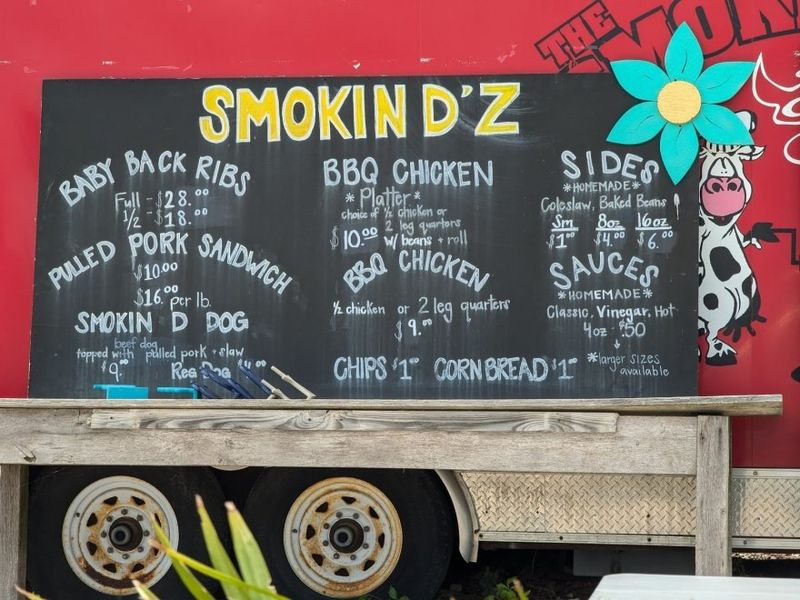 THE
SMOKIN D'Z
BABY BACK RIBS
Full - $28.00
1/2 - $18.00
PULLED PORK SANDWICH
$10.00
$16.00 per lb.
SMOKIN D DOG
beef dog
topped with pulled pork + slaw
$9.00
Reg Dog
BBQ CHICKEN
*Platter*
choice of ½ chicken or
2 leg quarters
$10.00 w/ beans + roll
BBQ CHICKEN
½ chicken or 2 leg quarters
$9.00
CHIPS $1.00 CORNBREAD $1.00
SIDES
*HOMEMADE*
Coleslaw, Baked Beans
Sm 8oz 16oz
$1.00 $4.00 $6.00
SAUCES
*HOMEMADE*
Classic, Vinegar, Hot
4oz - $.50
*larger sizes
available